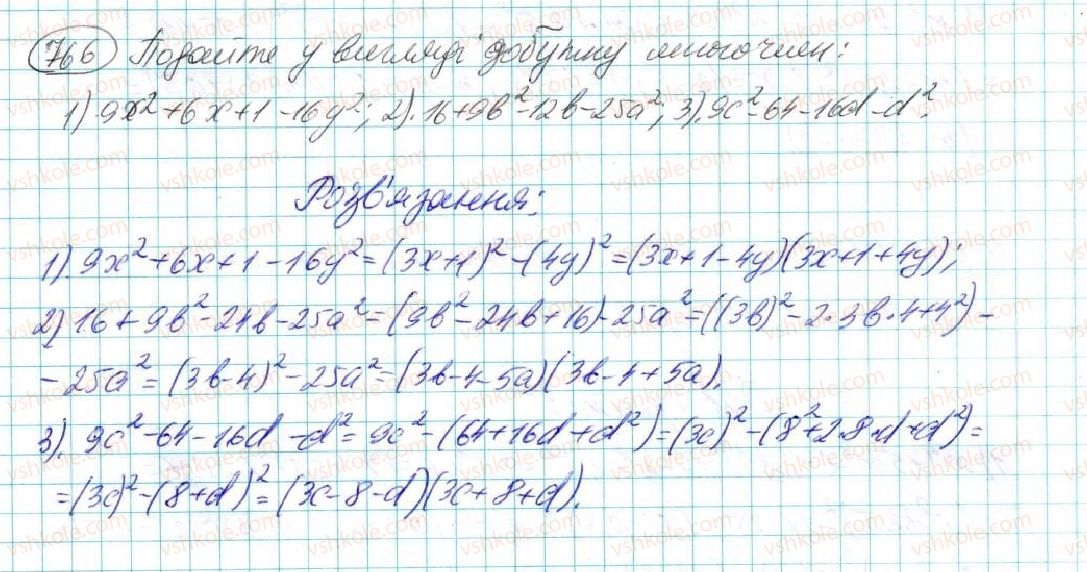 766 Подайте у вигляді добутку многочлен:
1) 9x²+6x+1-16y²; 2). 16+9b²-12b-25a²; 3). 9c²-64-16d-d².
Розв'язання:
1) 9x²+6x+1-16y²=(3x+1)²-(4y)²=(3x+1-4y)(3x+1+4y);
2) 16+9b²-24b-25a²=(9b²-24b+16)-25a²=((3b)²-2·3b·4+4²)-
-25a²=(3b-4)²-25a²=(3b-4-5a)(3b-4+5a).
3). 9c²-64-16d-d²=9c²-(64+16d+d²)=(3c)²-(8²+2·8·d+d²)=
=(3c)²-(8+d)²=(3c-8-d)(3c+8+d).